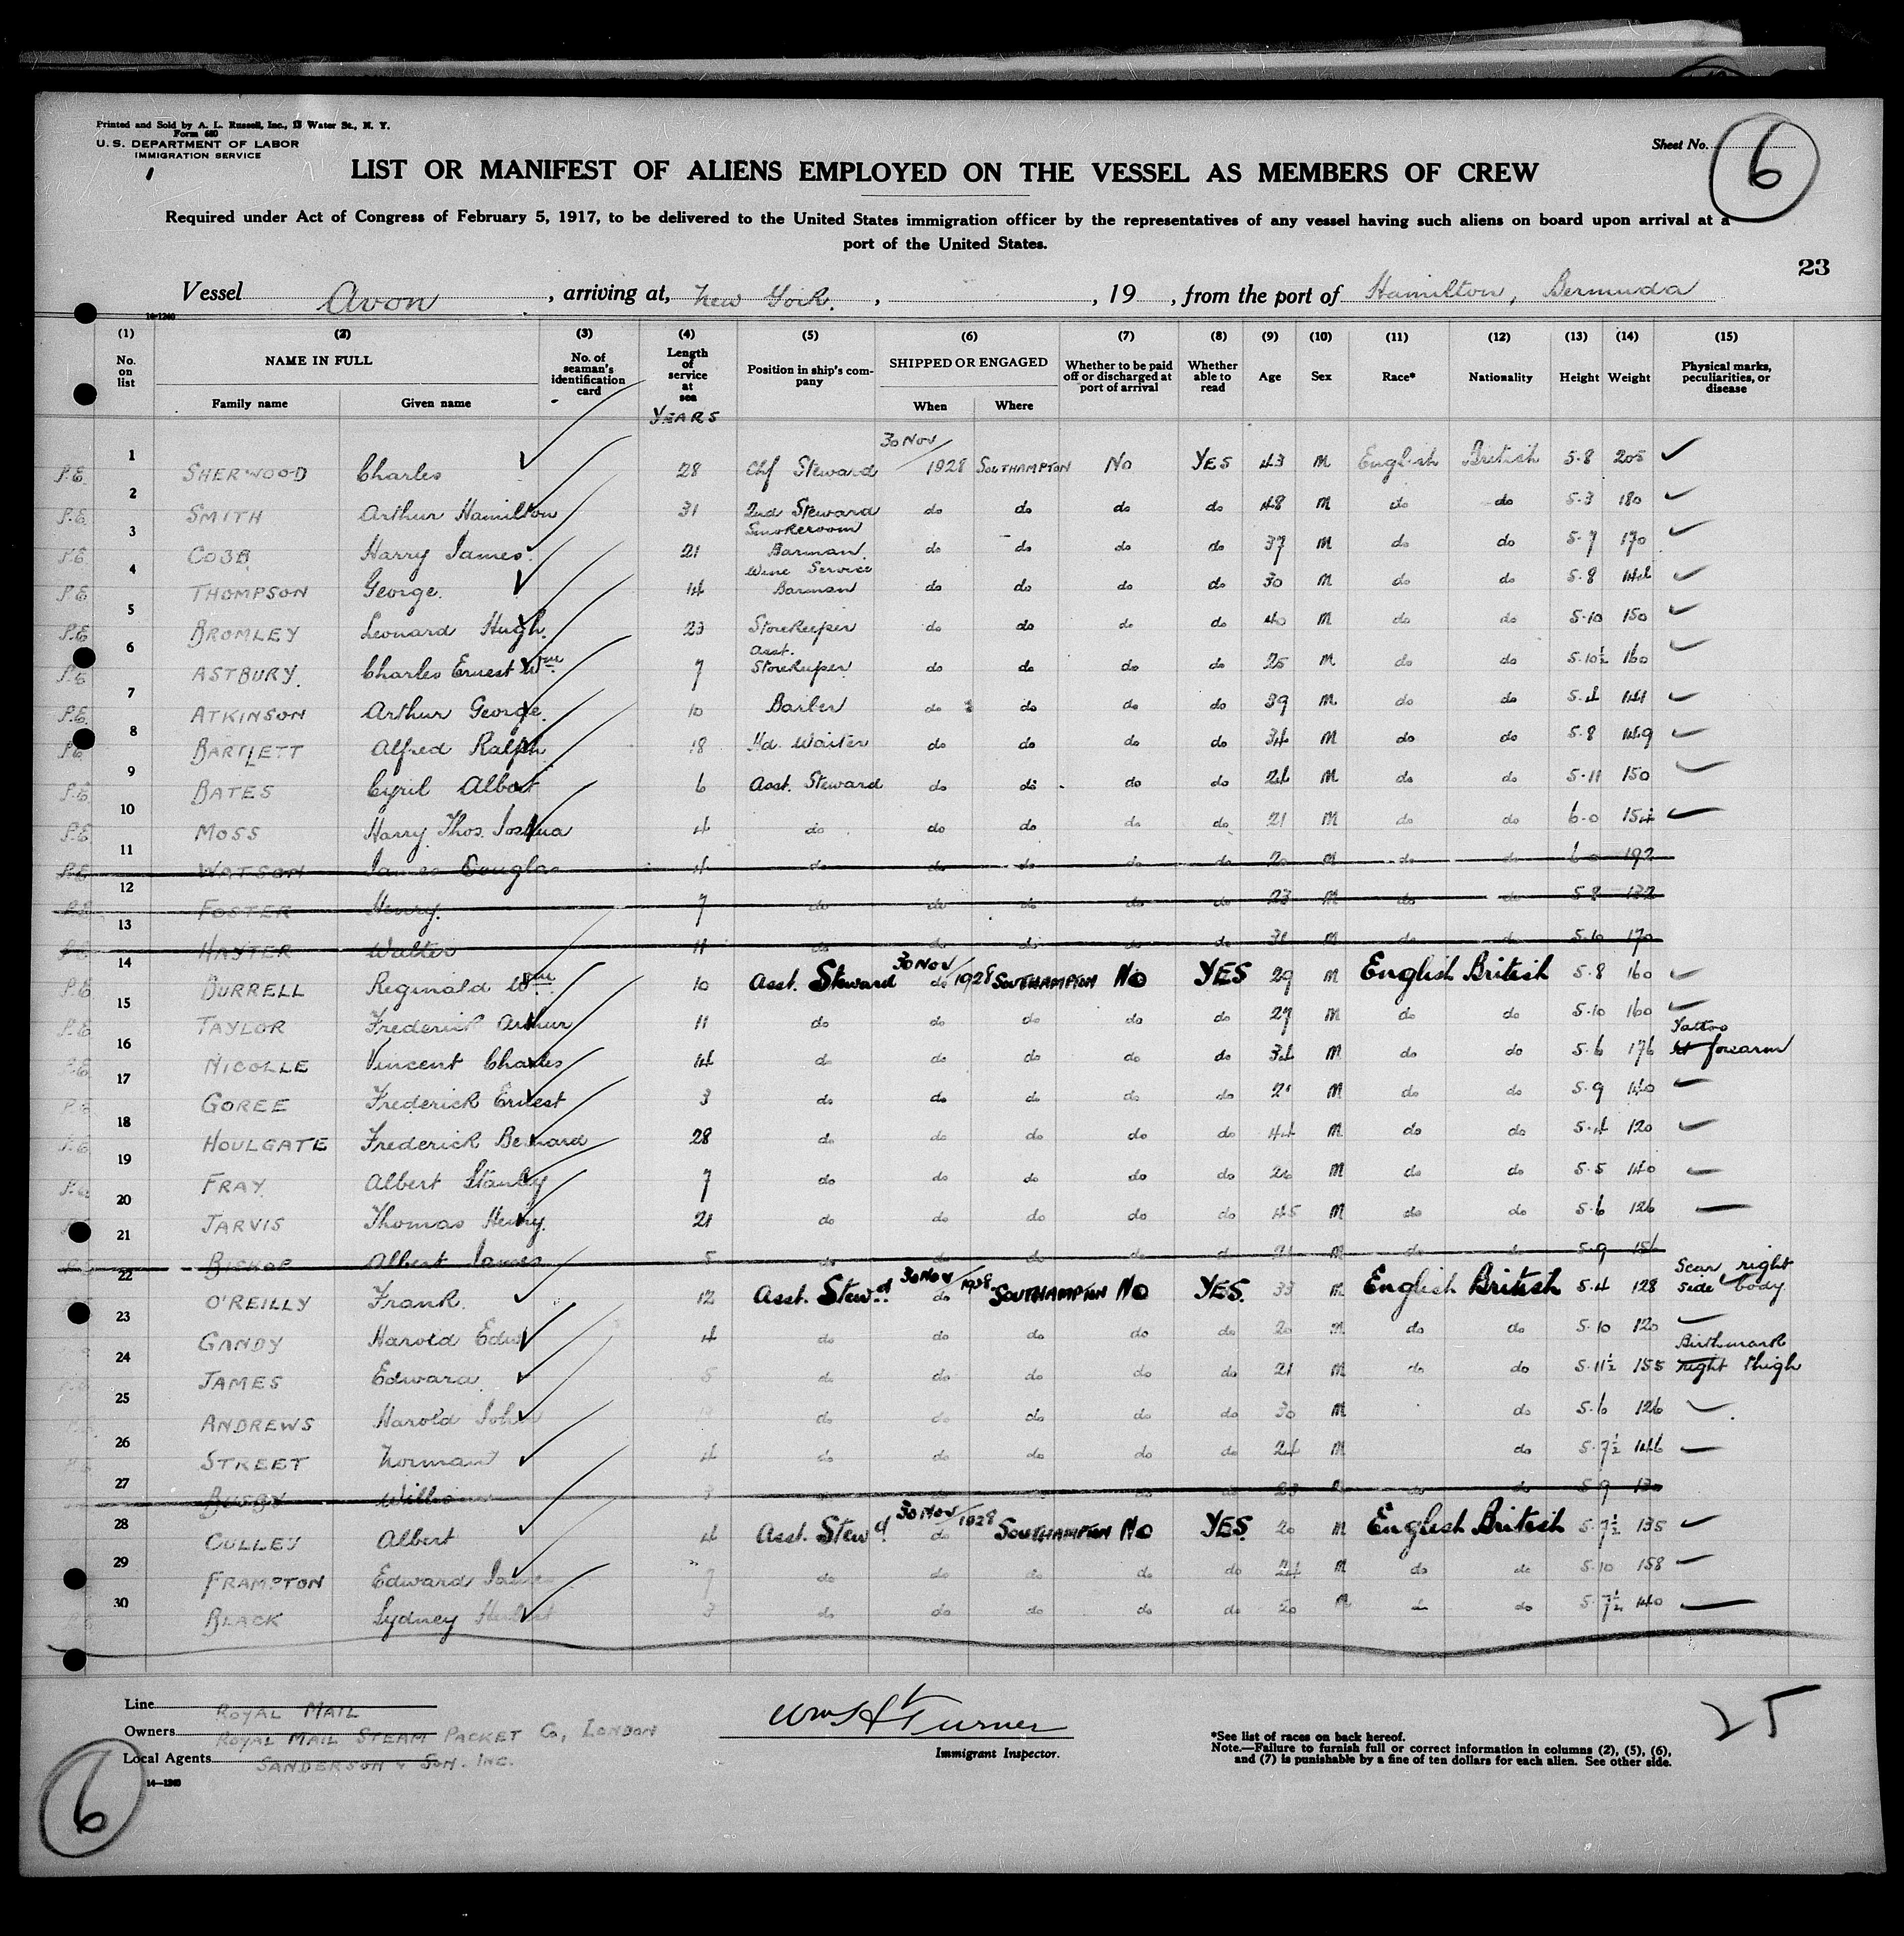 Printed and Sold by A. L. Russell, Inc., 13 Water St., N. Y.
Form 680
U. S. DEPARTMENT OF LABOR
IMMIGRATION SERVICE
Sheet No. 6
LIST OR MANIFEST OF ALIENS EMPLOYED ON THE VESSEL AS MEMBERS OF CREW
Required under Act of Congress of February 5, 1917, to be delivered to the United States immigration officer by the representatives of any vessel having such aliens on board upon arrival at a
port of the United States.
23
Vessel Avon, arriving at, New York, , 19 , from the port of Hamilton, Bermuda
14-1240
(1) (2) (3) (4) (5) (6) (7) (8) (9) (10) (11) (12) (13) (14) (15)
No. on list NAME IN FULL No. of seaman's identification card Length of service at sea Position in ship's company SHIPPED OR ENGAGED Whether to be paid off or discharged at port of arrival Whether able to read Age Sex Race* Nationality Height Weight Physical marks, peculiarities, or disease
Family name Given name YEARS When Where
1 P.E. SHERWOOD Charles 28 Chf Steward 30 Nov/1928 SOUTHAMPTON No YES 43 m English British 5.8 205
2 P.E. SMITH Arthur Hamilton 31 2nd Steward do do do do 48 m do do 5.3 180
3 P.E. COBB Harry James. 21 Smokeroom Barman. do do do do 37 m do do 5.7 170
4 P.E. THOMPSON George. 14 Wine Service Barman do do do do 30 m do do 5.8 144
5 P.E. BROMLEY Leonard Hugh. 23 Storekeeper do do do do 40 m do do 5.10 150
6 P.E. ASTBURY. Charles Ernest Wm. 7 Asst. Storekeeper do do do do 25 m do do 5.10½ 160
7 P.E. ATKINSON Arthur George. 10 Barber do do do do 39 m do do 5.4 141
8 P.E. BARTLETT Alfred Ralph. 18 Hd. Waiter do do do do 34 m do do 5.8 149
9 P.E. BATES Cyril Albert 6 Asst. Steward do do do do 24 m do do 5.11 150
10 P.E. MOSS Harry Thos. Joshua 4 do do do do do 21 m do do 6.0 154
11 P.E. WATSON James Douglas 4 do do do do do 20 m do do 6.0 192
12 P.E. FOSTER Henry. 7 do do do do do 23 m do do 5.8 132
13 P.E. HAYTER Walter 11 do do do do do 31 m do do 5.10 170
14 P.E. BURRELL Reginald Wm. 10 Asst. Steward 30 Nov/1928 do SOUTHAMPTON No YES 29 m English British 5.8 160
15 P.E. TAYLOR Frederick Arthur 11 do do do do do 27 m do do 5.10 160
16 P.E. NICOLLE Vincent Charles 14 do do do do do 34 m do do 5.6 176 Tattoo forearm
17 P.E. GOREE Frederick Ernest 3 do do do do do 21 m do do 5.9 140
18 P.E. HOULGATE Frederick Bernard 28 do do do do do 44 m do do 5.4 120
19 P.E. FRAY. Albert Stanley 7 do do do do do m do do 5.5 140
20 JARVIS Thomas Henry. 21 do do do do do 45 m do do 5.6 126
21 BISHOP Albert James 5 do do do do do 21 m do do 5.9
22 O'REILLY Frank. 12 Asst. Stewd. 30 Nov/1928 do SOUTHAMPTON No YES. 33 m English British 5.4 128 Scar right side body
23 GANDY Harold Edw 4 do do do do do 20 m do do 5.10 120
24 JAMES Edward. 5 do do do do do 21 m do do 5.11½ 155 Birthmark right thigh
25 ANDREWS Harold John do do do do do 30 m do 5.6 126
26 STREET Norman 4 do do do do do 24 m do 5.7½ 146
27 BUSBY 23 do do 5.9 130
28 CULLEY Albert 4 Asst. Stewd. 30 Nov/1928 do SOUTHAMPTON No YES 20 m English British 5.7½ 135
29 FRAMPTON Edward James 7 do do do do do 24 m do do 5.10 158
30 BLACK Sydney Herbert 3 do do do do do 20 m do do 5.7½ 140
Line ROYAL MAIL
Owners ROYAL MAIL STEAM PACKET Co, LONDON
Local Agents SANDERSON & SON. INC.
14-1240
Wm H Turner
Immigrant Inspector.
*See list of races on back hereof.
Note.—Failure to furnish full or correct information in columns (2), (5), (6),
and (7) is punishable by a fine of ten dollars for each alien. See other side.
25
6